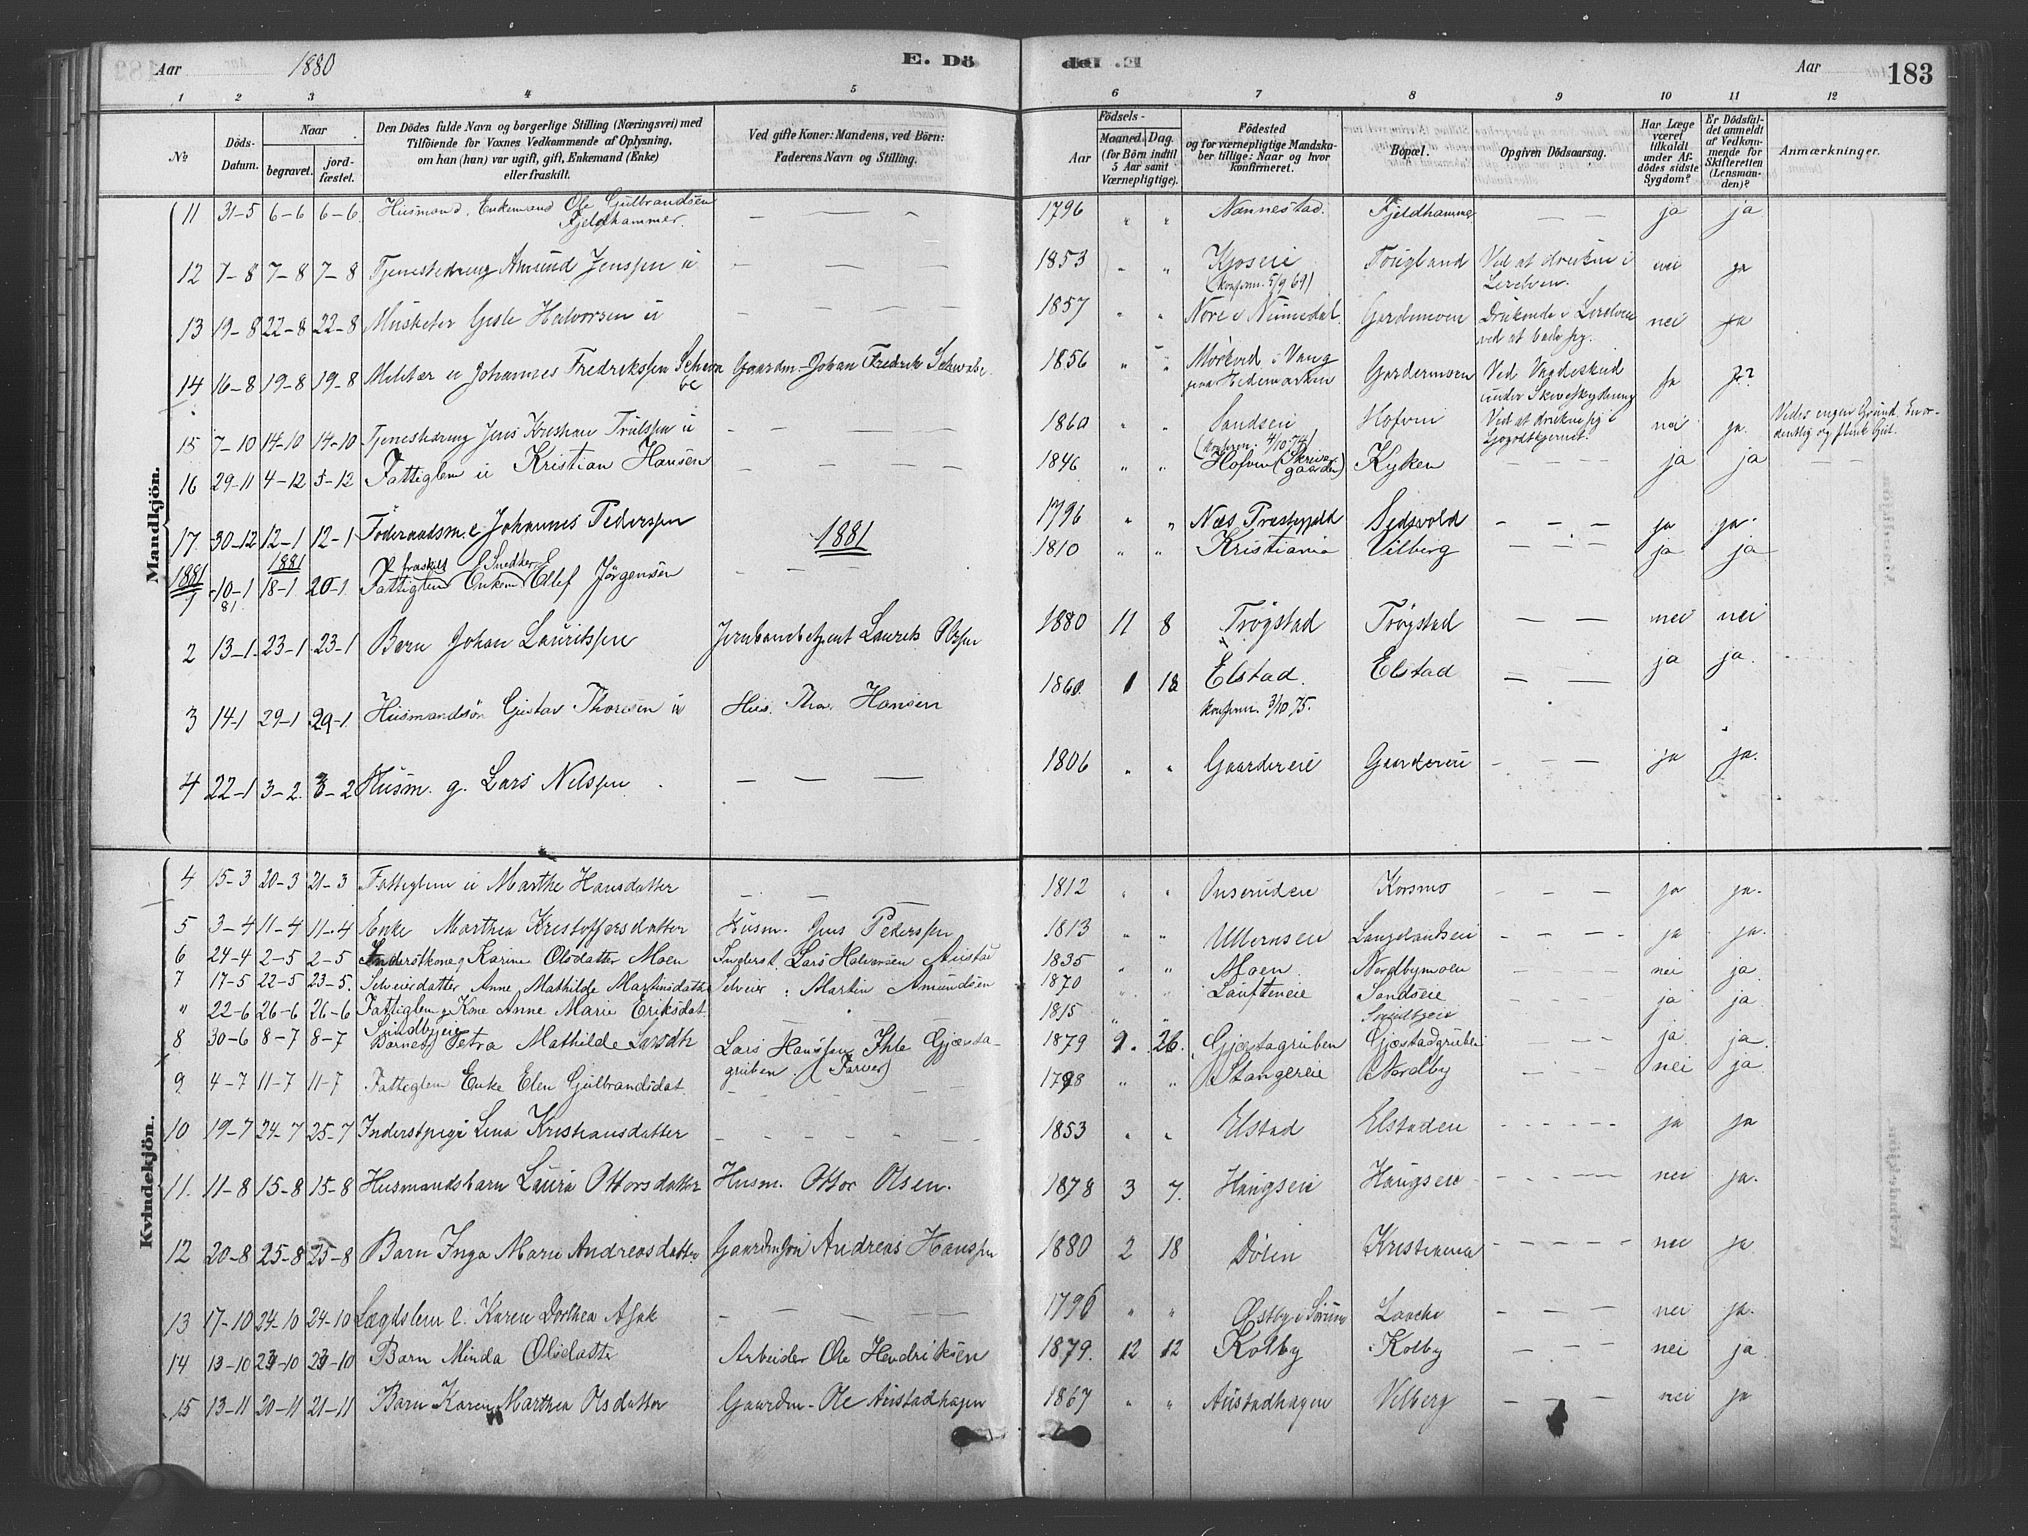 Aar 1880 E. Dö
Aar 183
1 2 3 4 5 6 7 8 9 10 11 12
No
Döds-Datum.
Naar begravet. jordfæstet.
Den Dödes fulde Navn og borgerlige Stilling (Næringsvei) med
Tilföiende for Voxnes Vedkommende af Oplysning,
om han (hun) var ugift, gift, Enkemand (Enke)
eller fraskilt.
Ved gifte Koner: Mandens, ved Börn:
Faderens Navn og Stilling.
Födsels-
Aar Maaned. Dag.
(for Börn indtil
5 Aar samt
Værnepligtige).
Födested
og for værnepligtige Mandska-
ber tillige: Naar og hvor
konfirmeret.
Bopæl.
Opgiven Dödsaarsag.
Har Læge
været
tilkaldt
under Af-
dödes sidste
Sygdom?
Er Dödsfal-
det anmeldt
af Vedkom-
mende for
Skifteretten
(Lensman-
den)?
Anmærkninger.
Mandkjön.
11 31-5 6-6 6-6 Husmand, Enkemand Ole Gulbrandsen Fjeldhammer. — — — 1796 " " Nannestad. Fjeldhammer — — ja ja
12 7-8 7-8 7-8 Tjenestedreng Amund Jenssen u — — — 1853 " " (konfirm. 5/9 69) Ved at drukne i Lerelven. nei ja
13 19-8 22-8 22-8 Musketer Gisle Halvorsen u — — — 1857 " " Nore i Numedal. Gardermoen Druknede i Lerelven ved at bade sig. nei ja
14 16-8 19-8 19-8 Militær u Johannes Fredrikssen Schwabe Gaardm. Johan Fredrik Schwabe. 1856 " " i Vang paa Hedemarken Gardermoen Ved Vaadeskud under Skiveskydning ja ja?
15 7-10 14-10 14-10 Tjenestedreng Jens Kristian Trulssen u — — — 1860 " " Sandseie (Konfirm. 4/10 74) Hofvin Ved at drukne sig i nei ja. Vides engen Grund. En ordentlig og flink Gut.
16 29-11 4-12 5-12 Fattiglem u Kristian Hansen — — — 1846 " " Hofvin (Skrivergaarden) Kyken — — — ja ja —
17 30-12 12-1 12-1 Föderaadsm. e Johannes Pederssen 1881 1796 " " Næs Præstegjeld Eidsvold — — — ja ja.
1881
1 10-1 81 18-1 1881 20-1 Fattiglem fraskilt Snedker Enkem Ellef Jörgensen — — — 1810 " " Kristiania Vilberg — — — ja ja
2 13-1 23-1 23-1 Barn Johan Lauritssen Jernbanebetjent Laurits Olssen 1880 11 8 Trögstad Trögstad — — nei nei
3 14-1 29-1 29-1 Husmandsön Gustav Thoresen u Hus. Tho. Hansen 1860 1 18 Elstad. konfirm. 3/10 75. Elstad — — ja ja.
4 22-1 3-2 3-2 Husm. g. Lars Nelssen — — — 1806 " " Gaardereie Gaardereie — — — ja ja.
Kvindekjön.
4 15-3 20-3 21-3 Fattiglem u Marthe Hansdatter — — — 1812 " " Onsrudeie Korsmo — — — ja ja.
5 3-4 11-4 11-4 Enke Marthea Kristoffersdatter Husm. Jens Pederssen 1813 " " Ullernseie — — — ja ja.
6 24-4 2-5 2-5 Inderstkone Karine Olsdatter Moen Inderst Lars Halvorsen Austad 1835 " " Moen Nordbymoen — — — nei ja
7 17-5 22-5 23-5 Selveierdatter Anne Mathilde Martinsdatter Selveier Martin Amundsen 1870 Sandseie — — — ja ja.
" 22-6 26-6 26-6 Fattiglem g. Kone Anne Marie Eriksdat. Sundbyeie 1815 " " Sundbyeie
8 30-6 8-7 8-7 Barnet Petra Mathilde Larsdtr Lars Hanssen Ihle Gjæstagruben. (Farver) 1879 9. 26. Gjæstagruben Gjæstadgruben — — — ja ja.
9 4-7 11-7 11-7 Fattiglem Enke Elen Gulbrandsdat. — 1798 " " Stangereie Nordby — — — nei ja
10 19-7 24-7 25-7 Inderstpige Lina Kristiansdatter — — — 1853 " " Elstad Elstadeie — — — ja ja
11. 11-8 15-8 15-8 Husmandsbarn Laura Ottorsdatter Husm. Ottor Olsen. 1878 3 7. Haugseie Haugseie — — — nei ja.
12 20-8 25-8 25-8 Barn Inga Marie Andreasdatter Gaardmsön Andreas Hanssen 1880 2 18 Dölin Kristiania — — — nei ja
13 17-10 24-10 24-10 Lægdslem e. Karen Dorthea Asak — — — 1796 " " Østby i Sörum Laache — — — nei ja.
14 13-10 23-10 23-10 Barn Minda Olsdatter Arbeider Ole Hendriksen 1879. 12 12 Kolby Kolby — — — nei ja
15 13-11 20-11 21-11 Barn Karen Marthea Olsdatter Gaardm. Ole Austadhagen 1867 " " Austadhagen Vilberg — — — nei ja